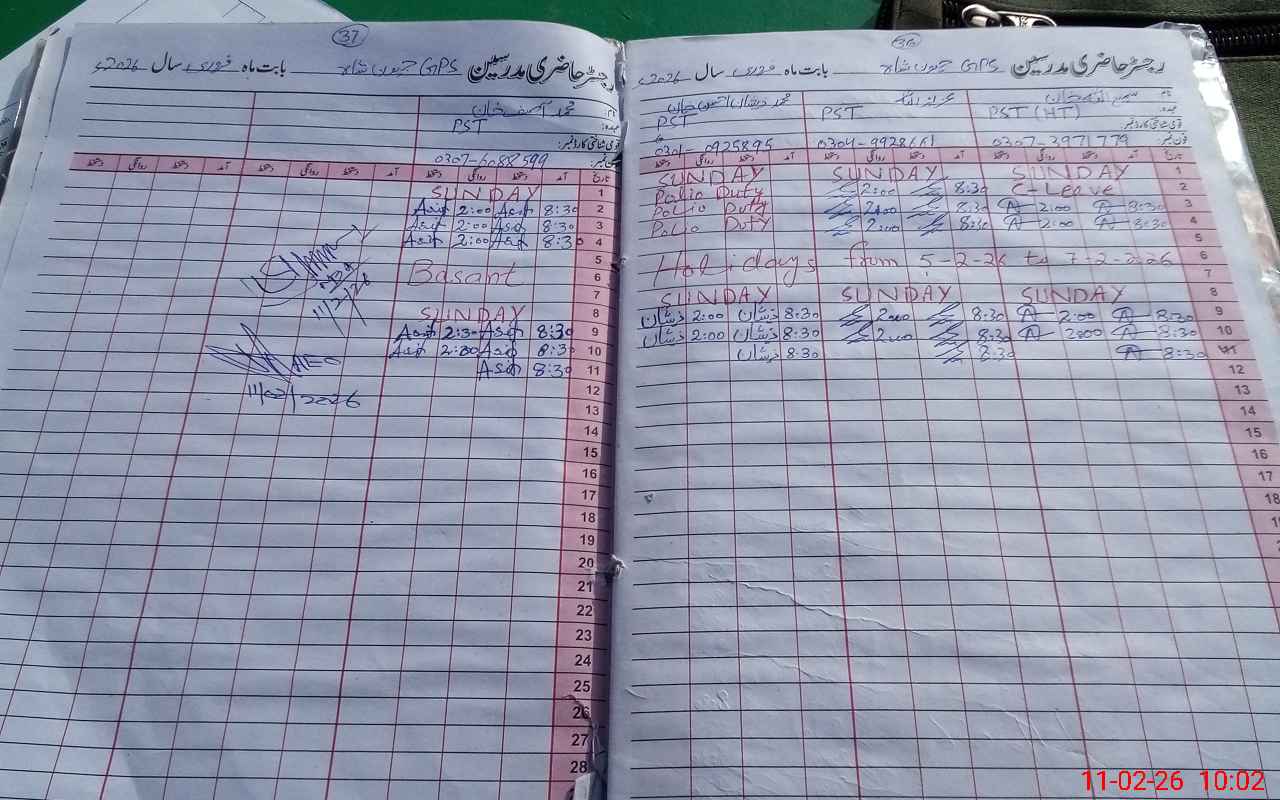 36
رجسٹر حاضری مدرسین GPS بابت ماہ فروری سال 2026ء
نام
PST (HT) PST PST
عہدہ
قومی شناختی کارڈ نمبر
فون نمبر 0307-3971779 0304-9928661 0301-0925895
تاریخ آمد دستخط روانگی دستخط آمد دستخط روانگی دستخط آمد دستخط روانگی دستخط
1 SUNDAY SUNDAY SUNDAY
2 C-Leave 8:30 2:00 Polio Duty
3 8:30 2:00 8:30 2:00 Polio Duty
4 8:30 2:00 8:30 2:00 Polio Duty
5
6 Holidays from 5-2-26 to 7-2-226
7
8 SUNDAY SUNDAY SUNDAY
9 8:30 2:00 8:30 2:00 8:30 ذیشان 2:00 ذیشان
10 8:30 2:00 8:30 2:00 8:30 ذیشان 2:00 ذیشان
11 8:30 8:30 8:30 ذیشان
12
13
14
15
16
17
18
37
رجسٹر حاضری مدرسین GPS بابت ماہ فروری سال 2026ء
نام محمد آصف خان
عہدہ PST
قومی شناختی کارڈ نمبر
0307-6088599
تاریخ آمد دستخط روانگی دستخط آمد دستخط روانگی دستخط آمد دستخط روانگی دستخط
1 SUNDAY
2 8:30 Asif 2:00 Asif
3 8:30 Asif 2:00 Asif
4 8:30 Asif 2:00 Asif
5
6 Basant
7
8 SUNDAY
9 8:30 Asif 2:30 Asif
10 8:30 Asif 2:30 Asif
11 8:30 Asif
12
13
14
15
16
17
18
19
20
21
22
23
24
25
26
27
28
11/2/26
AEO
11/02/2026
11-02-26 10:02